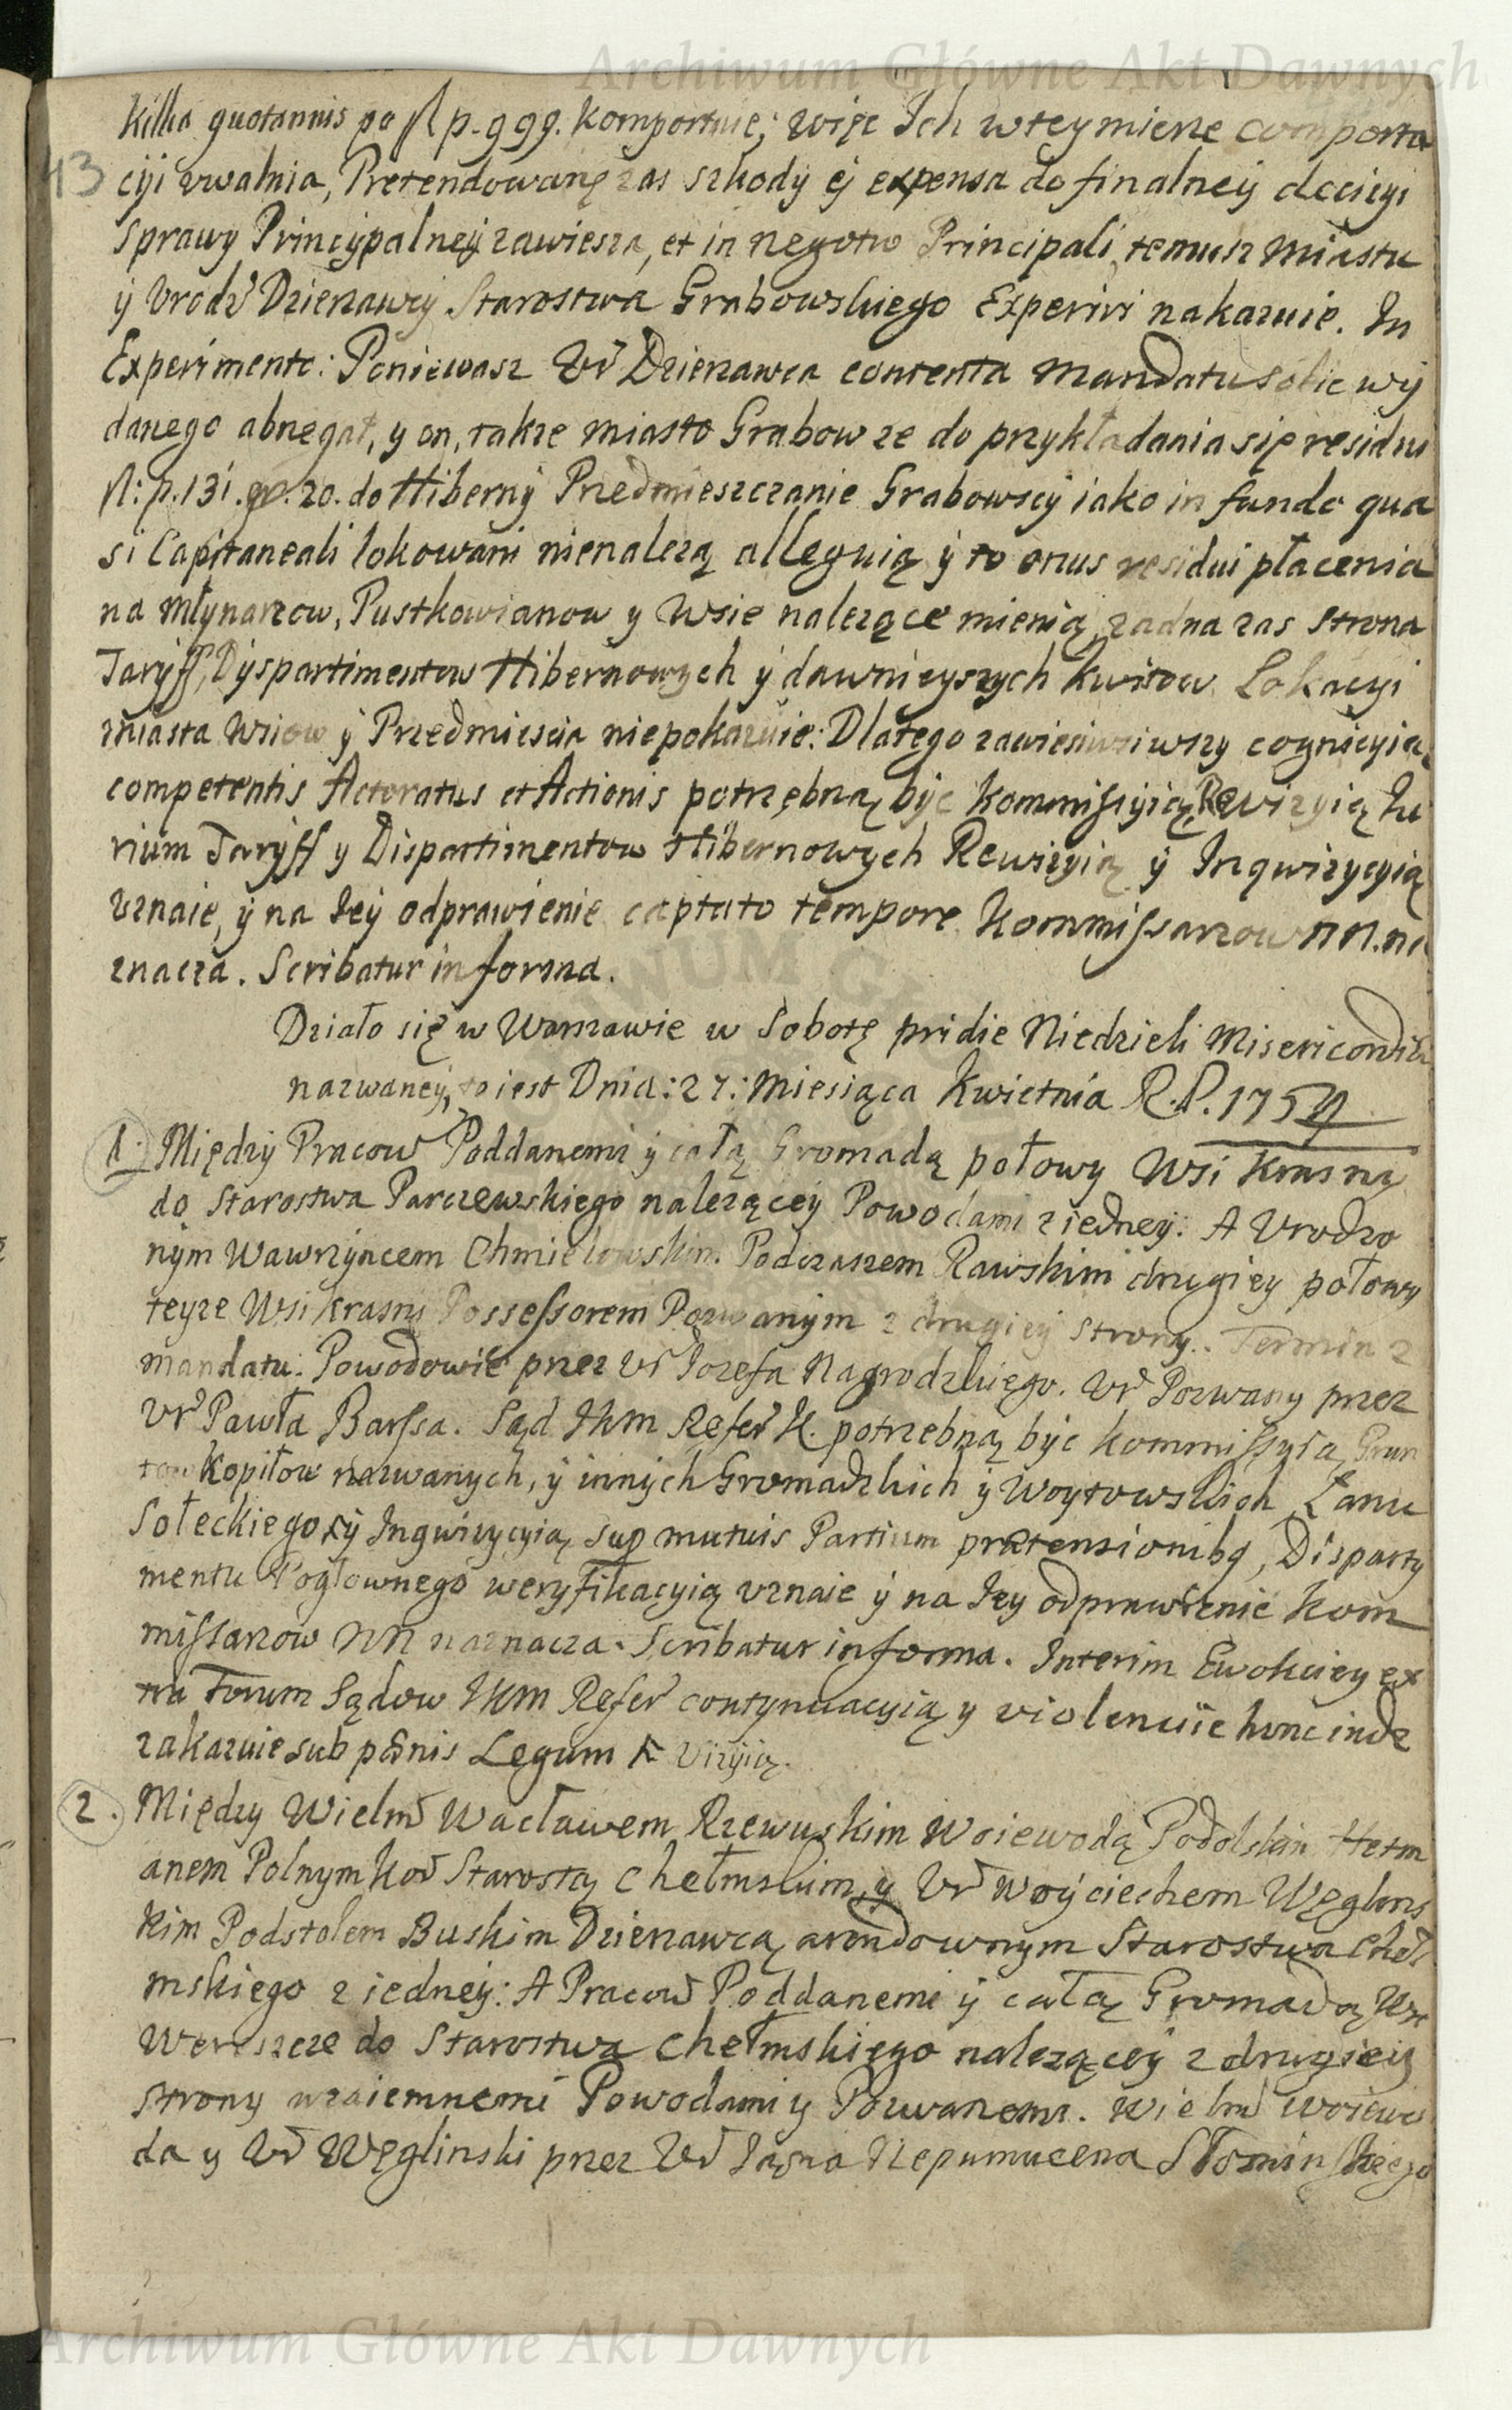 Archiwum Główne Akt Dawnych
kilka quotannis po fl p. 999. komportuie, więc Ich wteymierze comporta
43 cyi uwalnia, Pretendowanę zas szkody ÿ expensa do finalneÿ decizyi
sprawy Princÿpalneÿ zawiesza, et in negotio Principali temusz Miastu
ÿ Urodz Dzierzawcÿ Starostwa Grabowskiego Experiri nakazuie. In
Experimento: Poniewasz Ur Dzierzawca contenta Mandatu sobie wÿ
danego abnegat, y on, takze miasto Grabow ze do przykładania się residui
fl: p. 131. gr. 20. do Hibernÿ Przedmieszczanie Grabowscÿ iako in fundo qua
si Capitaneali lokowani nienalezą alleguią ÿ to onus residui płacenia
na Młynarzow, Pustkowianow y Wsie nalezące mienią, zadna zas strona
Taryff, Dÿspartimentow Hibernowych ÿ dawnieyszych kwitow Lokacyi
miasta Wsiow ÿ Przedmiescia niepokazuie: Dlatego zawiesiwszy cognicyią
competentis Actoratus et Actionis potrzębną bÿc Kommissÿią Rewizyią Iu
rium Taryff y Dispartimentow Hibernowych Rewizyią ÿ Inqwizycyią
uznaie, ÿ na Ieÿ odprawienie captato tempore Kommissarzow NN. na
znacza. Scribatur in forma.
Działo się w Warszawie w Sobotę pridie Niedzieli Misericordia
nazwaneÿ, to iest Dnia: 27: Miesiąca Kwietnia R. P. 1754
1. Międzÿ Pracow Poddanemi ÿ całą Gromadą połowy Wsi Krasnÿ
do Starostwa Parczewskiego nalezącey Powodami z iedneÿ: A Urodzo
nÿm Wawrzÿncem Chmielowskim Podczaszem Rawskim drugiey połowy
teyze Wsi Krasnÿ Possessorem Pozwanÿm z drugieÿ strony. Termin z
mandatu. Powodowie przez Ur Iozefa Nagrodzkiego. Ur Pozwany przez
Ur Pawła Barssa. Sąd IKM Refer K. potrzebną byc kommissyią Grun
tow Kopiłow nazwanych, ÿ innÿch Gromadzkich ÿ Woytowskich Łanu
Sołeckiego ÿ Inqwizycyią sup mutuis Partium prætensionibq, Disparty
mentu Pogłownego weryfikacyią uznaie ÿ na Iey odprawienie Kom
missarzow NN naznacza. Scribatur in forma. Interim Ewokcieÿ ex
tra Forum Sądow IKM Refer contynuacyią y violencÿie hinc inde
zakazuie sub pænis Legum wizyią.
2. Między Wielm Wacławem Rzewuskim Woiewodą Podolskim Hetm
anem Polnym Kor Starostą Chełmskim, y Ur Woÿciechem Węglins
kim Podstolem Buskim Dzierzawcą arendownym Starostwa Cheł
mskiego z iedneÿ: A Pracow Poddanemi ÿ całą Gromadą Wsi
Wereszcze do Starostwa Chełmskiego nalezącey z drugieÿ
strony wzaiemnemi Powodami y Pozwanemi. Wielm Woiewo
da y Ur Węglinski przez Ur Iana Nepumucena Słominskiego
Archiwum Główne Akt Dawnych